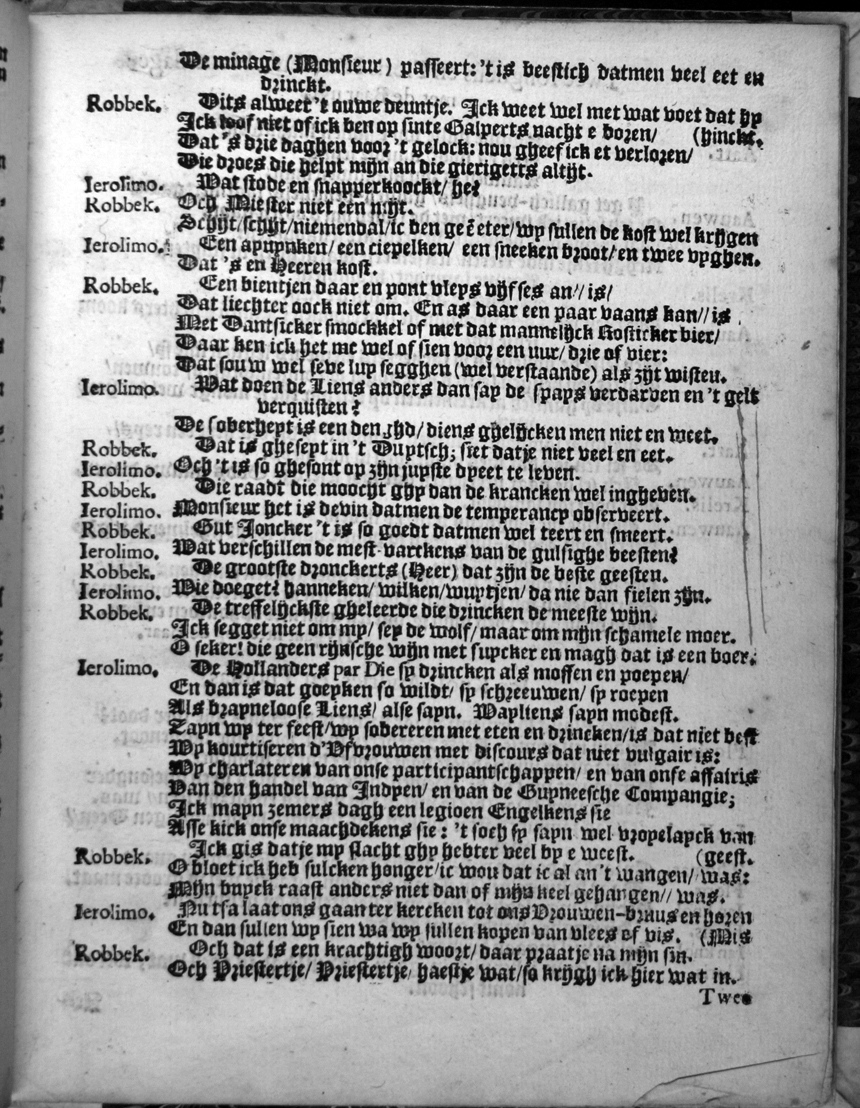 De minage (Monsieur) passeert: 't is beestich datmen veel eet en
drinckt.
Robbek. Dits alweet 't ouwe deuntje. Ick weet wel met wat voet dat hy
Ick loof niet of ick ben op sinte Galperts nacht e boren/ (hinckt.
Dat 's drie daghen voor 't gelock: nou gheef ick et verloren/
Die droes die helpt mijn an die gierigetts altijt.
Ierolimo. Wat stode en snapperkoockt/ he?
Robbek. Och Miester niet een mijt.
Schijt/schijt/niemendal/ic ben geē eter/wy sullen de kost wel krijgen
Ierolimo. Een apuynken/een ciepelken/ een sneeken broot/en twee vyghen.
Dat 's en Heeren kost.
Robbek. Een bientjen daar en pont vleys vijf ses an// is/
Dat liechter oock niet om. En as daar een paar vaans kan// is
Met Dantsicker smockkel of met dat mannelijck Rosticker bier/
Daar ken ick het me wel of sien voor een uur/ drie of vier:
Dat souw wel seve lup segghen (wel verstaande) als zijt wisten.
Ierolimo. Wat doen de Liens anders dan sap de spays verdarven en 't gelt
verquisten?
De soberheyt is een den zhd/ diens ghelijcken men niet en weet.
Robbek. Dat is gheseyt in 't Duytsch; siet datje niet veel en eet.
Ierolimo. Och 't is so ghesont op zijn juyste dyeet te leven.
Robbek. Die raadt die moocht ghy dan de krancken wel ingheven.
Ierolimo. Monsieur het is devin datmen de temperancy observeert.
Robbek. Gut Joncker 't is so goedt datmen wel teert en smeert.
Ierolimo. Wat verschillen de mest-varckens van de gulsighe beesten?
Robbek. De grootste dronckerts (Heer) dat zijn de beste geesten.
Ierolimo. Wie doeget? hanneken/ wilken/wuytjen/ da nie dan fielen zijn.
Robbek. De treffelijckste gheleerde die drincken de meeste wijn.
Ick segget niet om my/ sey de wolf/ maar om mijn schamele moer.
O seker! die geen rijnsche wijn met suycker en magh dat is een boer.
Ierolimo. De Hollanders par Die sy drincken als moffen en poepen/
En dan is dat goepken so wildt/ sy schreeuwen/ sy roepen
Als brayneloose Liens/ alse sayn. Wayliens sayn modest.
Zayn wy ter feest/wy sobereren met eten en drincken/is dat niet best
Wy kourtiseren d'Vfvrouwen met discours dat niet vulgair is:
Wy charlateren van onse participantschappen/ en van onse affairis
Van den handel van Indyen/ en van de Guyneesche Compangie;
Ick mayn zemers dagh een legioen Engelkens sie
Asse kick onse maachdekens sie: 't soch sy sayn wel vroyelayck van
Robbek. Ick gis datje my slacht ghy hebter veel by e weest. (geest.
O bloet ick heb sulcken honger/ic wou dat ic al an't wangen/ was:
Mijn buyck raast anders niet dan of mijn keel gehangen// was.
Ierolimo. Nu tsa laat ons gaan ter kercken tot ons Vrouwen-bruus en horen
En dan sullen wy sien wa wy sullen kopen van vlees of vis. (Mis
Robbek. Och dat is een krachtigh woort/ daar praatje na mijn sin.
Och Priestertje/ Priestertje/ haestje wat/so krijgh ick hier wat in.
Twee